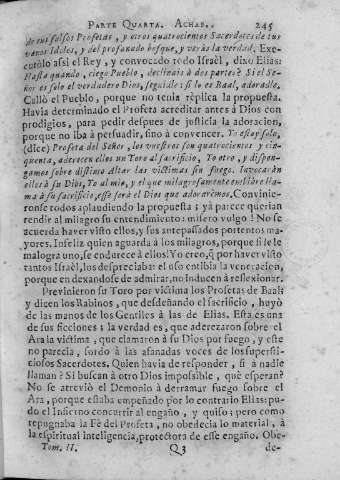 PARTE QUARTA. ACHAB. 245
de tus falsos Profetas, y otros quatrocientos Sacerdotes de tus
vanos Idolos, y del profanado bosque, y veràs la verdad. Exe-
cutòlo assi el Rey, y convocado todo Israèl, dixo Elias:
Hasta quando, ciego Pueblo, declinais à dos partes? Si el Se-
ñor es solo el verdadero Dios, seguidle: si lo es Baal, adoradle.
Callò el Pueblo, porque no tenia rèplica la propuesta.
Havia determinado el Profeta acreditar antes à Dios con
prodigios, para pedir despues de justicia la adoracion,
porque no iba à persuadir, sino à convencer. Yo estoy solo,
(dice) Profeta del Señor, los vuestros son quatrocientos y cin-
quenta, aderecen ellos un Toro al sacrificio, Yo otro, y dispon-
gamos sobre distinto Altar las victimas sin fuego. Invocaràn
ellos à su Dios, Yo al mio, y el que milagrosamente embiàre lla-
ma à su sacrificio, esse serà el Dios que adorarèmos. Convinie-
ronse todos aplaudiendo la propuesta; yà parece querian
rendir al milagro su entendimiento: misero vulgo! No se
acuerda haver visto ellos, y sus antepassados portentos ma-
yores. Infeliz quien aguarda à los milagros, porque si se le
malogra uno, se endurece à ellos! Yo creo, q̃ por haver visto
tantos Israèl, los despreciaba: el uso entibia la veneracion,
porque en dexandose de admirar, no inducen à reflexionar.
Previnieron su Toro por victima los Profetas de Baal;
y dicen los Rabinos, que desdeñando el sacrificio, huyò
de las manos de los Gentiles à las de Elias. Esta es una
de sus ficciones: la verdad es, que aderezaron sobre el
Ara la victima, que clamaron à su Dios por fuego, y este
no parecia, sordo à las afanadas voces de los supersti-
ciosos Sacerdotes. Quien havia de responder, si à nadie
llaman? Si buscan à otro Dios impossible, què esperan?
No se atreviò el Demonio à derramar fuego sobre el
Ara, porque estaba empeñado por lo contrario Elias: pu-
do el Infierno concurrir al engaño, y quiso; pero como
repugnaba la Fè del Profeta, no obedecia lo material, à
la espiritual inteligencia, protectora de esse engaño. Obe-
Tom. II. Q3 de-